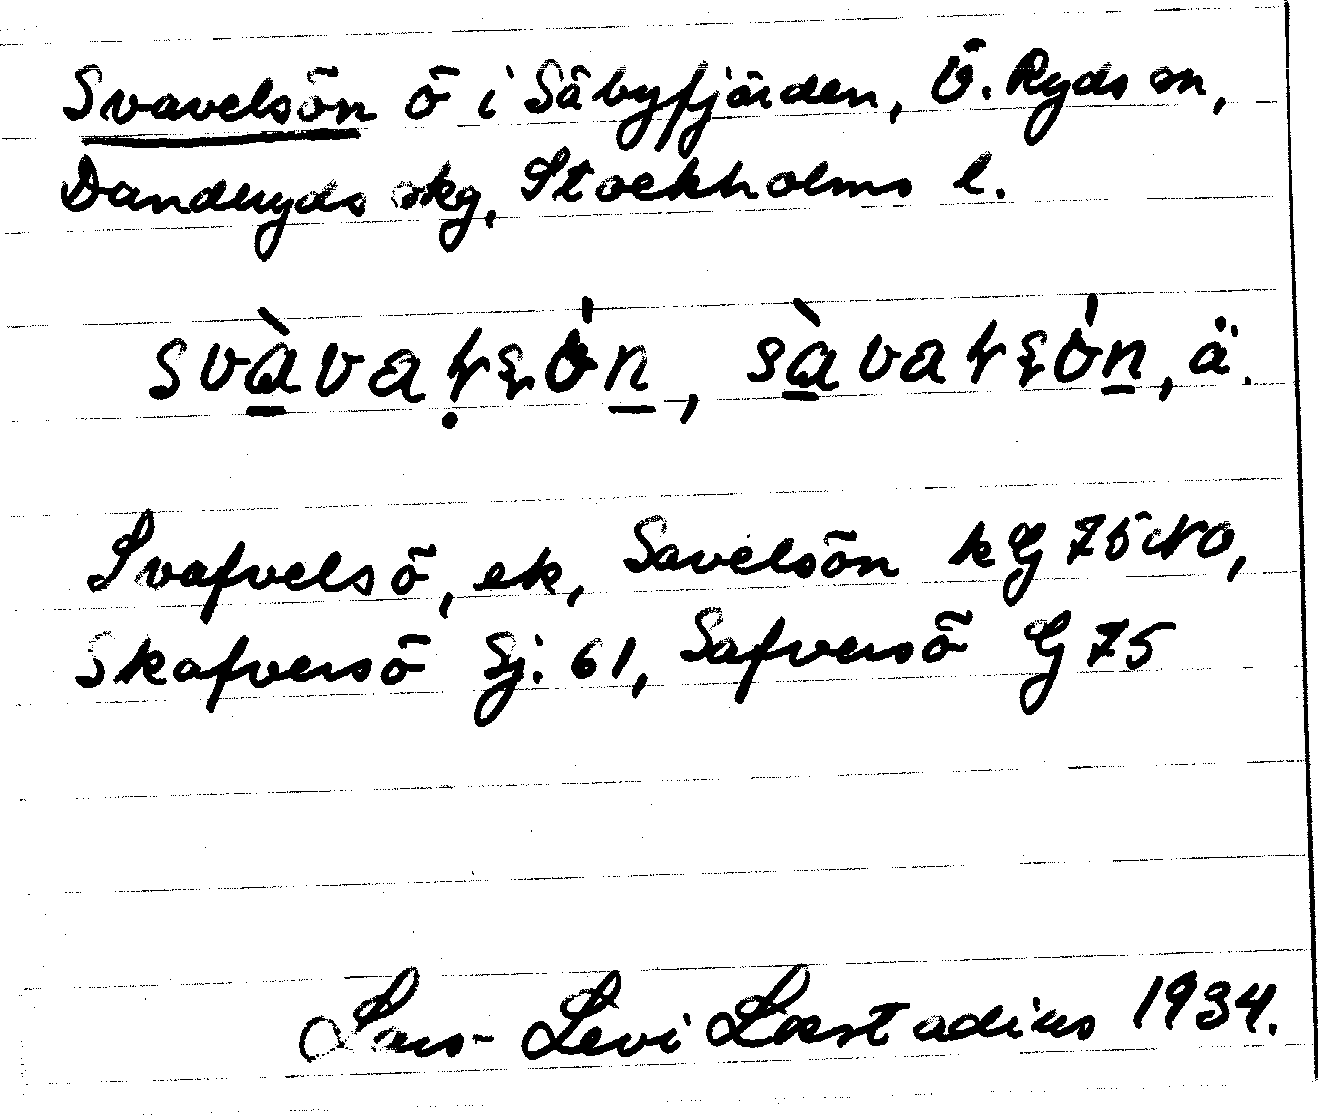 Svavelsön ö i Säbyfjärden, Ö. Ryds sn,
Danderyds skg, Stockholms l.
Svafvelsö, ek, Savelsön kG 75 NO,
Skafversö Sj. 61, Safversö G 75
Lars-Levi Læstadius 1934.